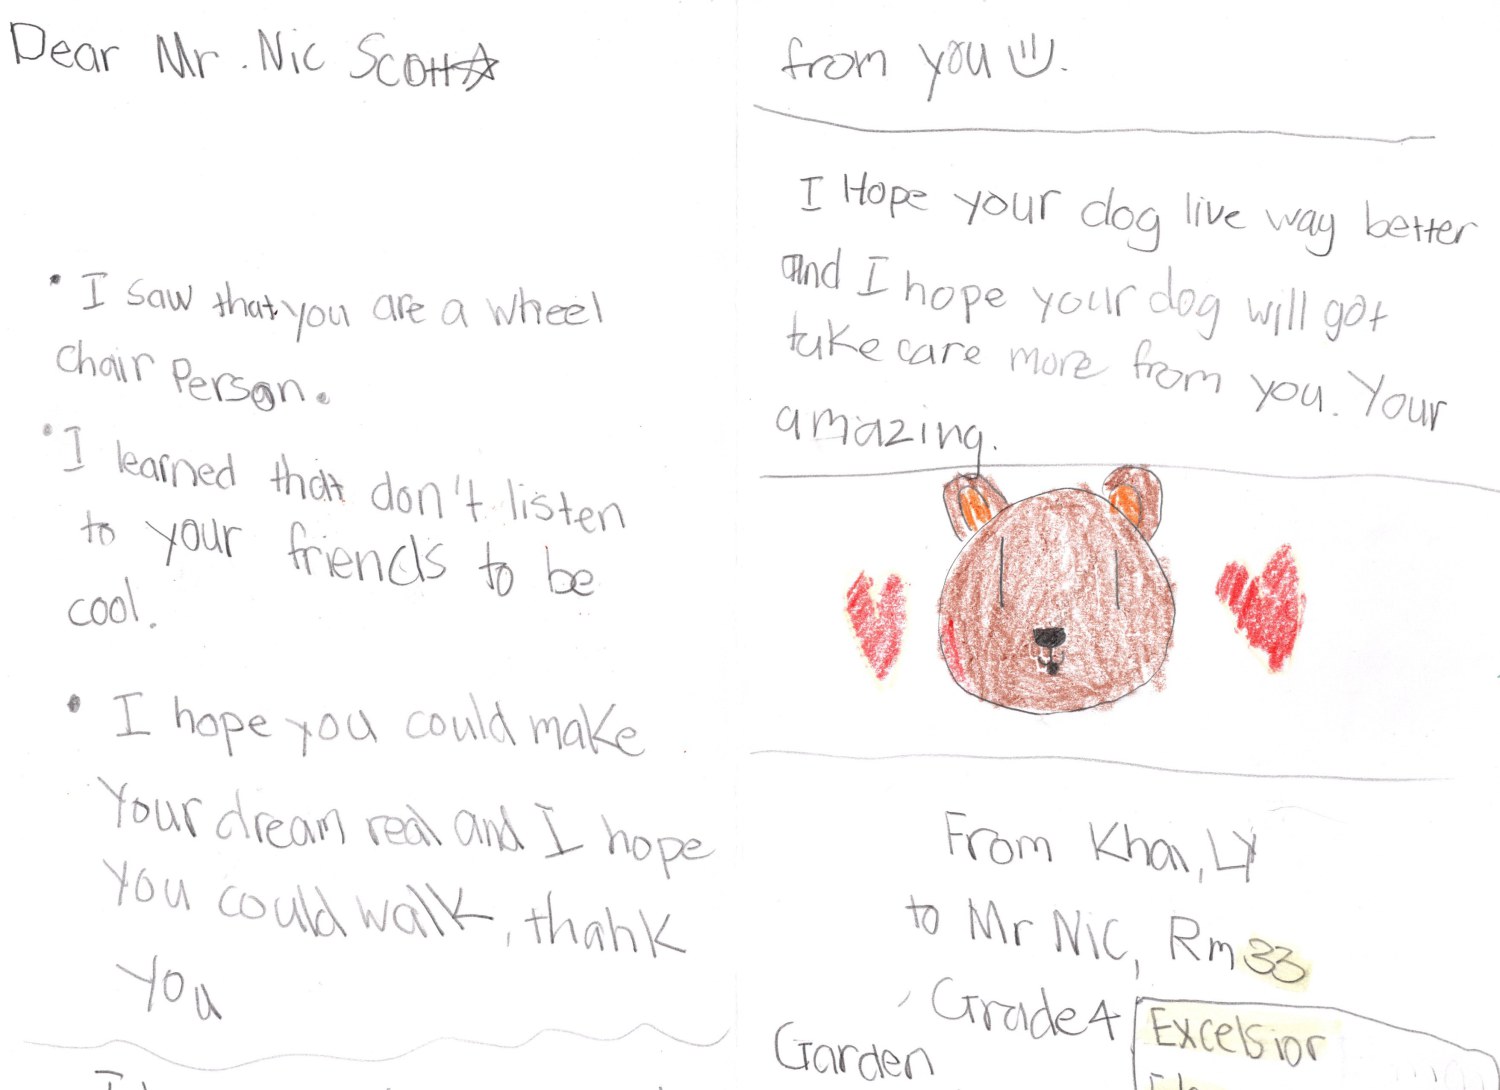 Dear Mr. Nic Scott
• I saw that you are a wheel
chair Person.
• I learned that don't listen
to your friends to be
cool.
• I hope you could make
Your dream real and I hope
you could walk, thank
you
from you
I Hope your dog live way better
and I hope your dog will got
take care more from you. Your
amazing.
From Khan, LY
to Mr Nic, Rm 33
Grade 4
Garden
Excelsior